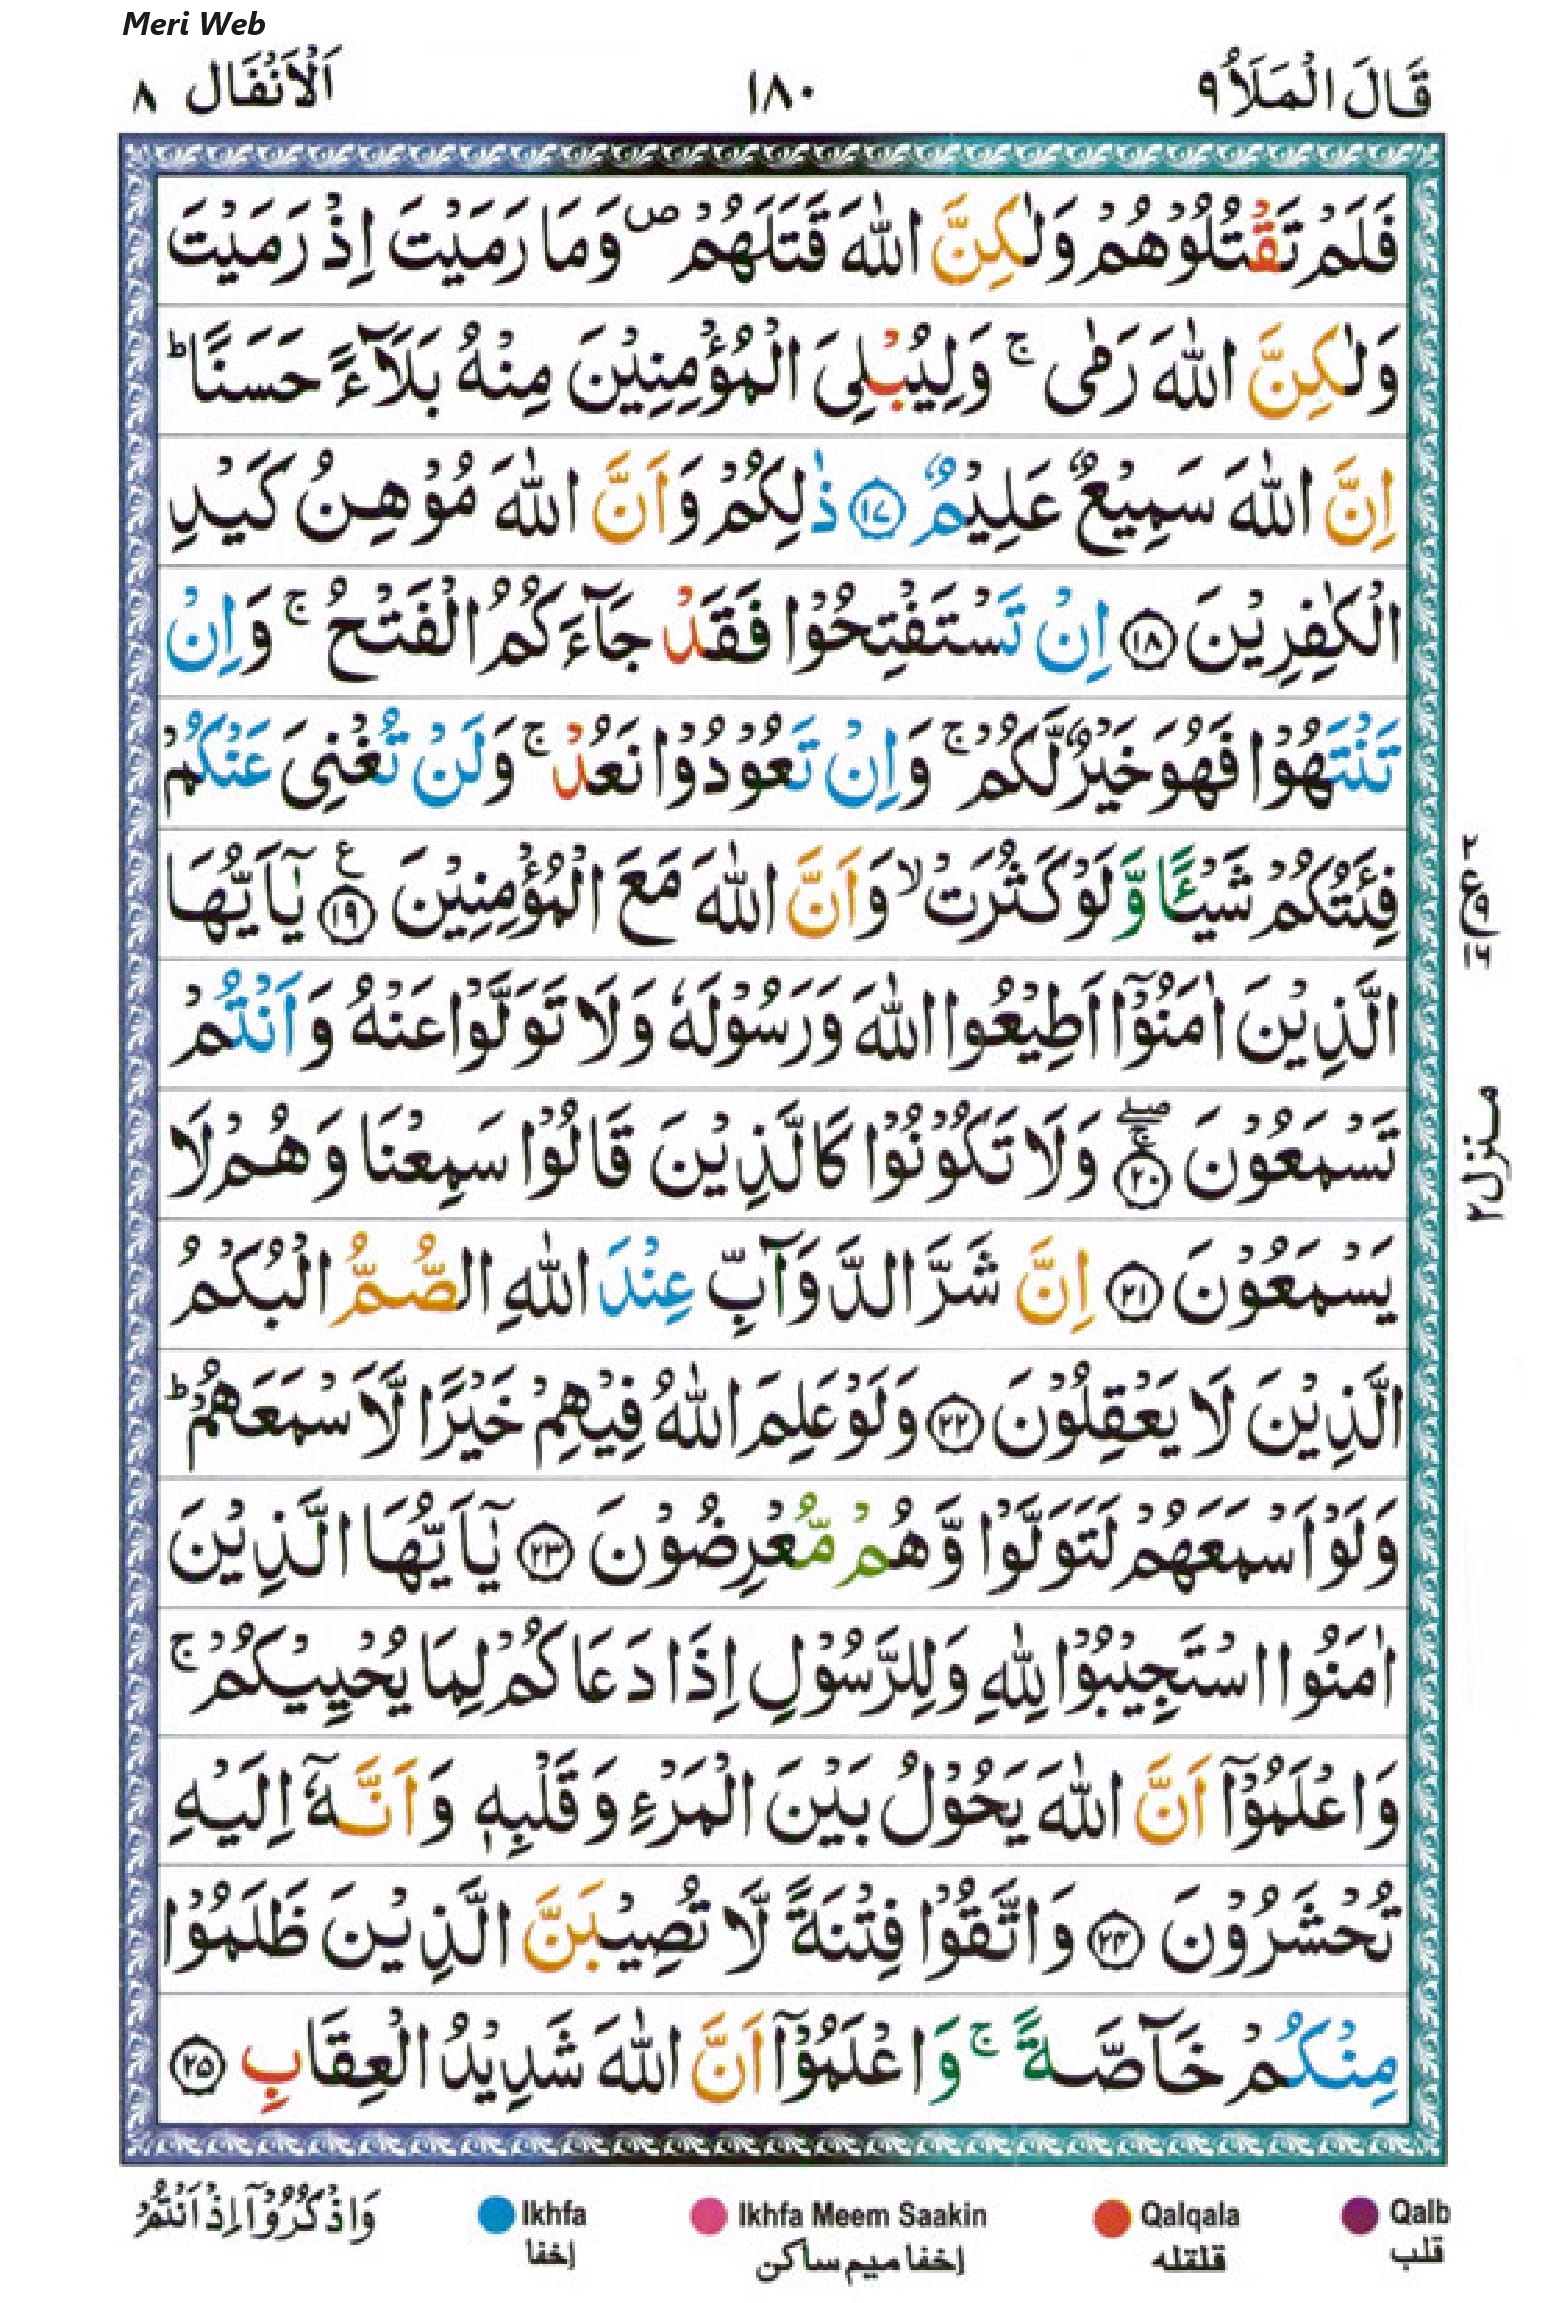 Meri Web
قَالَ الْمَلَاُ ٩ ١٨٠ اَلْاَنْفَال ٨
فَلَمْ تَقْتُلُوْهُمْ وَلٰكِنَّ اللّٰهَ قَتَلَهُمْ ۪ وَمَا رَمَيْتَ اِذْ رَمَيْتَ
وَلٰكِنَّ اللّٰهَ رَمٰى ۚ وَلِيُبْلِيَ الْمُؤْمِنِيْنَ مِنْهُ بَلَآءً حَسَنًا ؕ
اِنَّ اللّٰهَ سَمِيْعٌ عَلِيْمٌ ۝١٧ ذٰلِكُمْ وَاَنَّ اللّٰهَ مُوْهِنُ كَيْدِ
الْكٰفِرِيْنَ ۝١٨ اِنْ تَسْتَفْتِحُوْا فَقَدْ جَآءَكُمُ الْفَتْحُ ۚ وَاِنْ
تَنْتَهُوْا فَهُوَ خَيْرٌ لَّكُمْ ۚ وَاِنْ تَعُوْدُوْا نَعُدْ ۚ وَلَنْ تُغْنِيَ عَنْكُمْ
فِئَتُكُمْ شَيْـًٔا وَّلَوْ كَثُرَتْ ۙ وَاَنَّ اللّٰهَ مَعَ الْمُؤْمِنِيْنَ ۝١٩ ع يٰۤاَيُّهَا
٢
ع
١٦
الَّذِيْنَ اٰمَنُوْۤا اَطِيْعُوا اللّٰهَ وَرَسُوْلَهٗ وَلَا تَوَلَّوْا عَنْهُ وَاَنْتُمْ
تَسْمَعُوْنَ ۝٢٠ ۚ ۖ وَلَا تَكُوْنُوْا كَالَّذِيْنَ قَالُوْا سَمِعْنَا وَهُمْ لَا
منزل ٢
يَسْمَعُوْنَ ۝٢١ اِنَّ شَرَّ الدَّوَآبِّ عِنْدَ اللّٰهِ الصُّمُّ الْبُكْمُ
الَّذِيْنَ لَا يَعْقِلُوْنَ ۝٢٢ وَلَوْ عَلِمَ اللّٰهُ فِيْهِمْ خَيْرًا لَّاَسْمَعَهُمْ ؕ
وَلَوْ اَسْمَعَهُمْ لَتَوَلَّوْا وَّهُمْ مُّعْرِضُوْنَ ۝٢٣ يٰۤاَيُّهَا الَّذِيْنَ
اٰمَنُوا اسْتَجِيْبُوْا لِلّٰهِ وَلِلرَّسُوْلِ اِذَا دَعَاكُمْ لِمَا يُحْيِيْكُمْ ۚ
وَاعْلَمُوْۤا اَنَّ اللّٰهَ يَحُوْلُ بَيْنَ الْمَرْءِ وَقَلْبِهٖ وَاَنَّهٗۤ اِلَيْهِ
تُحْشَرُوْنَ ۝٢٤ وَاتَّقُوْا فِتْنَةً لَّا تُصِيْبَنَّ الَّذِيْنَ ظَلَمُوْا
مِنْكُمْ خَآصَّةً ۚ وَاعْلَمُوْۤا اَنَّ اللّٰهَ شَدِيْدُ الْعِقَابِ ۝٢٥
وَاذْكُرُوْۤا اِذْ اَنْتُمْ
Ikhfa Ikhfa Meem Saakin Qalqala Qalb
إخفا إخفا میم ساکن قلقله قلب